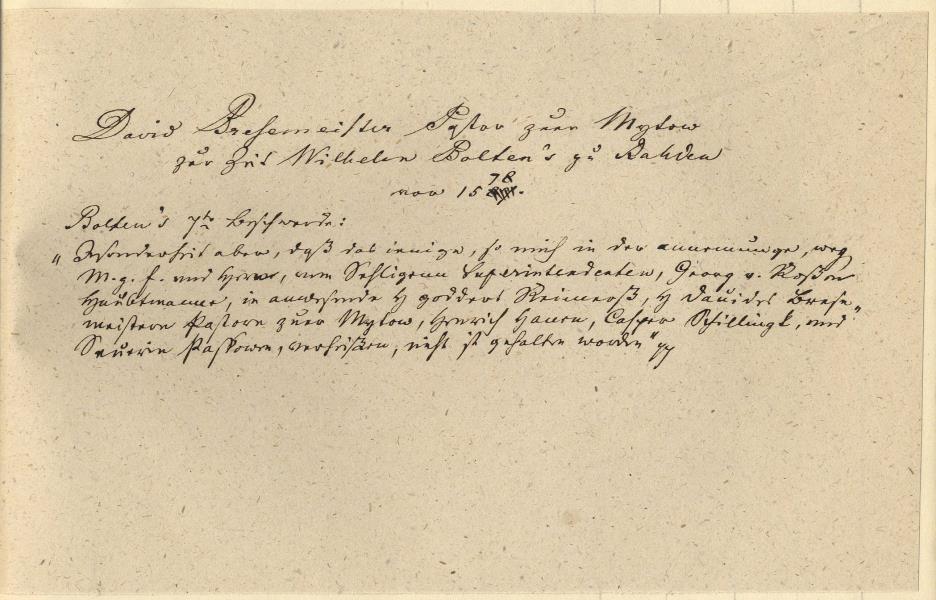 David Bresemeister Pastor zuer Mytow
zur Zeit Wilhelm Bolten's zu Bahden
von 1578.
Bolten's 7te Beschwerde:
"Insonderheit aber, daß das iennige, so mich in der annemunge, weg
M. g. F. und Herrn, vom Sehligenn Superintendenten, Georg v. Roßen
Haubtmanne, in anwesende H goddert Reimerß, H Dauides Brese-
meistern Pastorn zuer Mytow, Henrich Hanen, Casper Schillingk, und
Seuerin Paßkowen, verheischen, nicht ist gehalten worden" pp